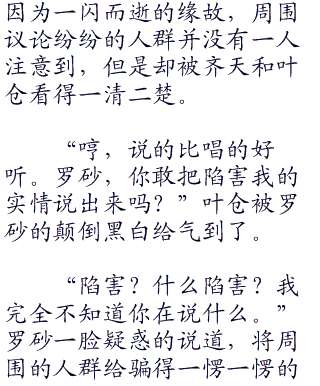 因为一闪而逝的缘故，周围
议论纷纷的人群并没有一人
注意到，但是却被齐天和叶
仓看得一清二楚。
“哼，说的比唱的好
听。罗砂，你敢把陷害我的
实情说出来吗？”叶仓被罗
砂的颠倒黑白给气到了。
“陷害？什么陷害？我
完全不知道你在说什么。”
罗砂一脸疑惑的说道，将周
围的人群给骗得一愣一愣的